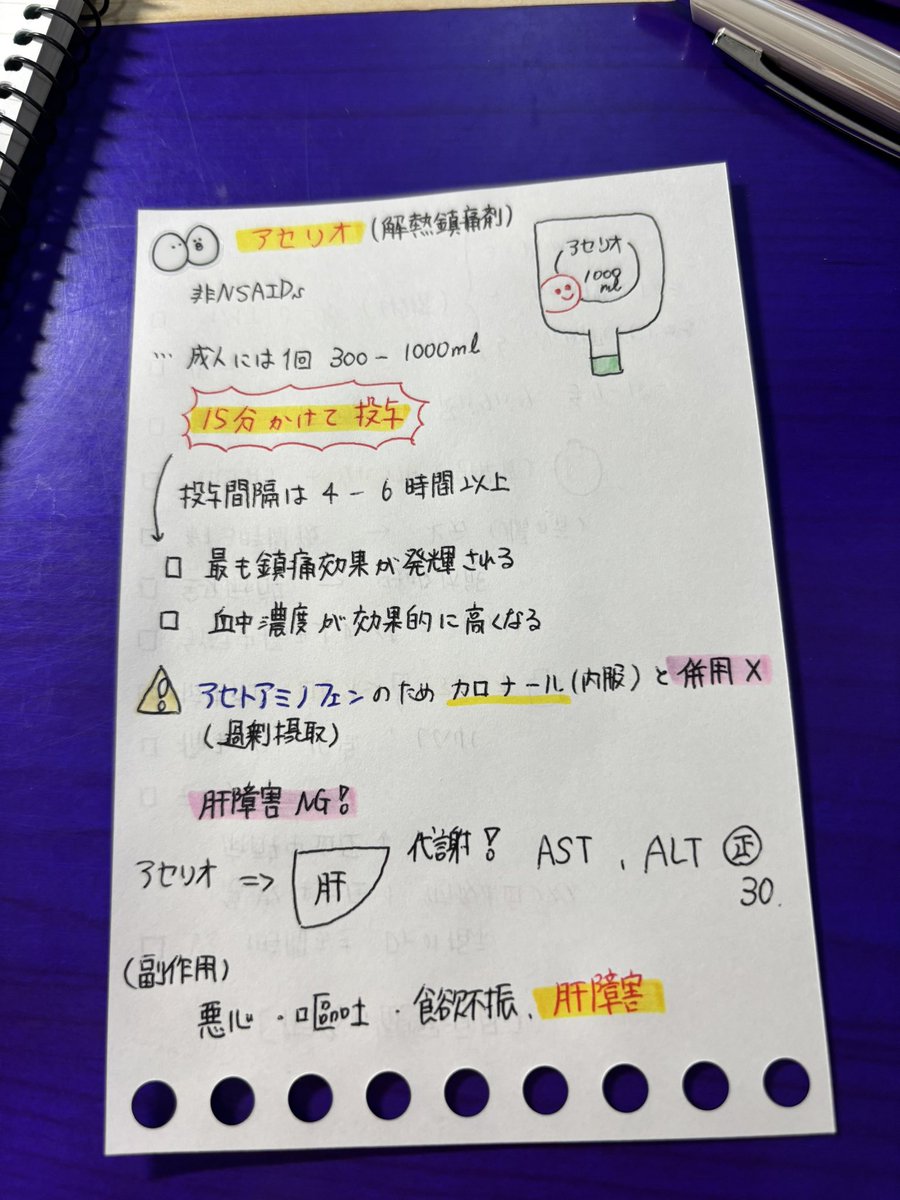 アセリオ (解熱鎮痛剤)
アセリオ
1000
ml
非NSAIDs
… 成人には1回 300 - 1000ml
15分かけて投与
投与間隔は 4 - 6 時間以上
□ 最も鎮痛効果が発揮される
□ 血中濃度が効果的に高くなる
アセトアミノフェンのため カロナール(内服)と併用 X
(過剰摂取)
肝障害 NG!
アセリオ => 肝 代謝! AST 、ALT 正
30.
(副作用)
悪心・嘔吐・食欲不振、肝障害